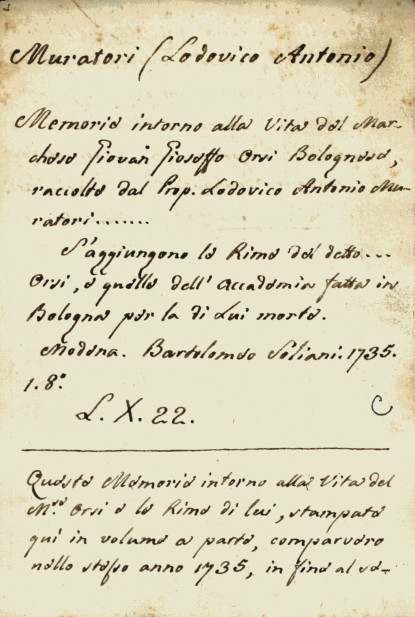 Muratori (Lodovico Antonio)
Memorie intorno alla Vita del Mar-
chese Giovan Gioseffo Orsi Bolognese,
raccolte dal Prop. Lodovico Antonio Mu-
ratori.......
S'aggiungono le Rime del detto...
Orsi, e quelle dell'Accademia fatta in
Bologna per la di Lui morte.
Modena. Bartolomeo Soliani. 1735.
1. 8.°
L. X. 22.
C
Queste Memorie intorno alla Vita del
M.se Orsi e le Rime di lui, stampate
qui in volume a parte, comparvero
nello stesso anno 1735, in fine al se-